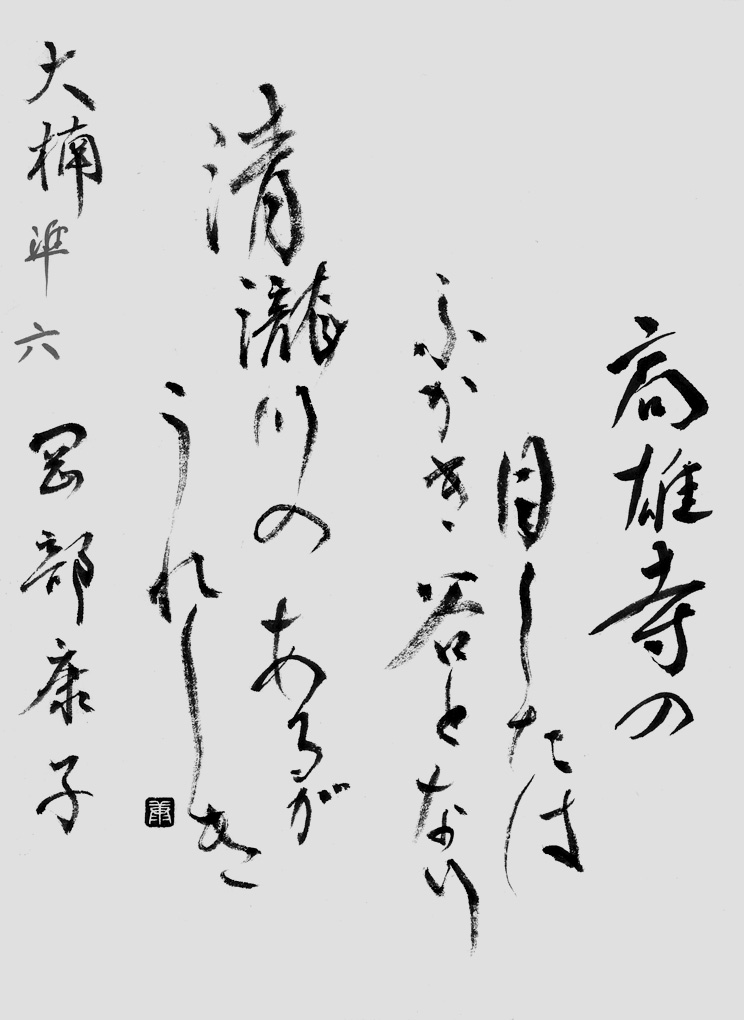 高雄寺の
目したは
ふかき谷となり
清瀧川の あるが
うれしき
大楠 準六 岡部康子
康